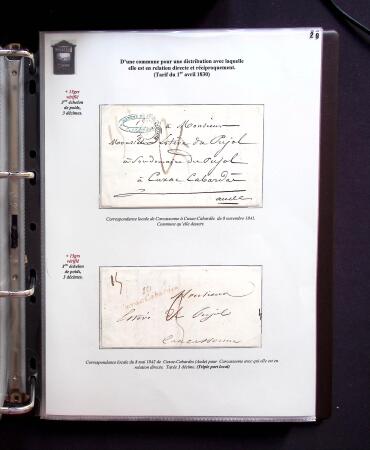 29
D'une commune pour une distribution avec laquelle
elle est en relation directe et réciproquement.
(Tarif du 1er avril 1830)
+ 15grs
vérifié
3ème échelon
de poids,
3 décimes.
à Monsieur
Monsieur Estève du Pujol
à Cuxac Cabardès
aude
Correspondance locale de Carcassonne à Cuxac-Cabardès du 8 novembre 1841.
Commune qu'elle dessert
+ 15grs
vérifié
3ème échelon
de poids,
3 décimes.
15
10
Cuxac-Cabardès
Monsieur
Estève du Pujol
Carcassonne
3
Correspondance locale du 8 mai 1842 de Cuxac-Cabardès (Aude) pour Carcassonne avec qui elle est en
relation directe. Taxée 3 décimes. (Triple port local)